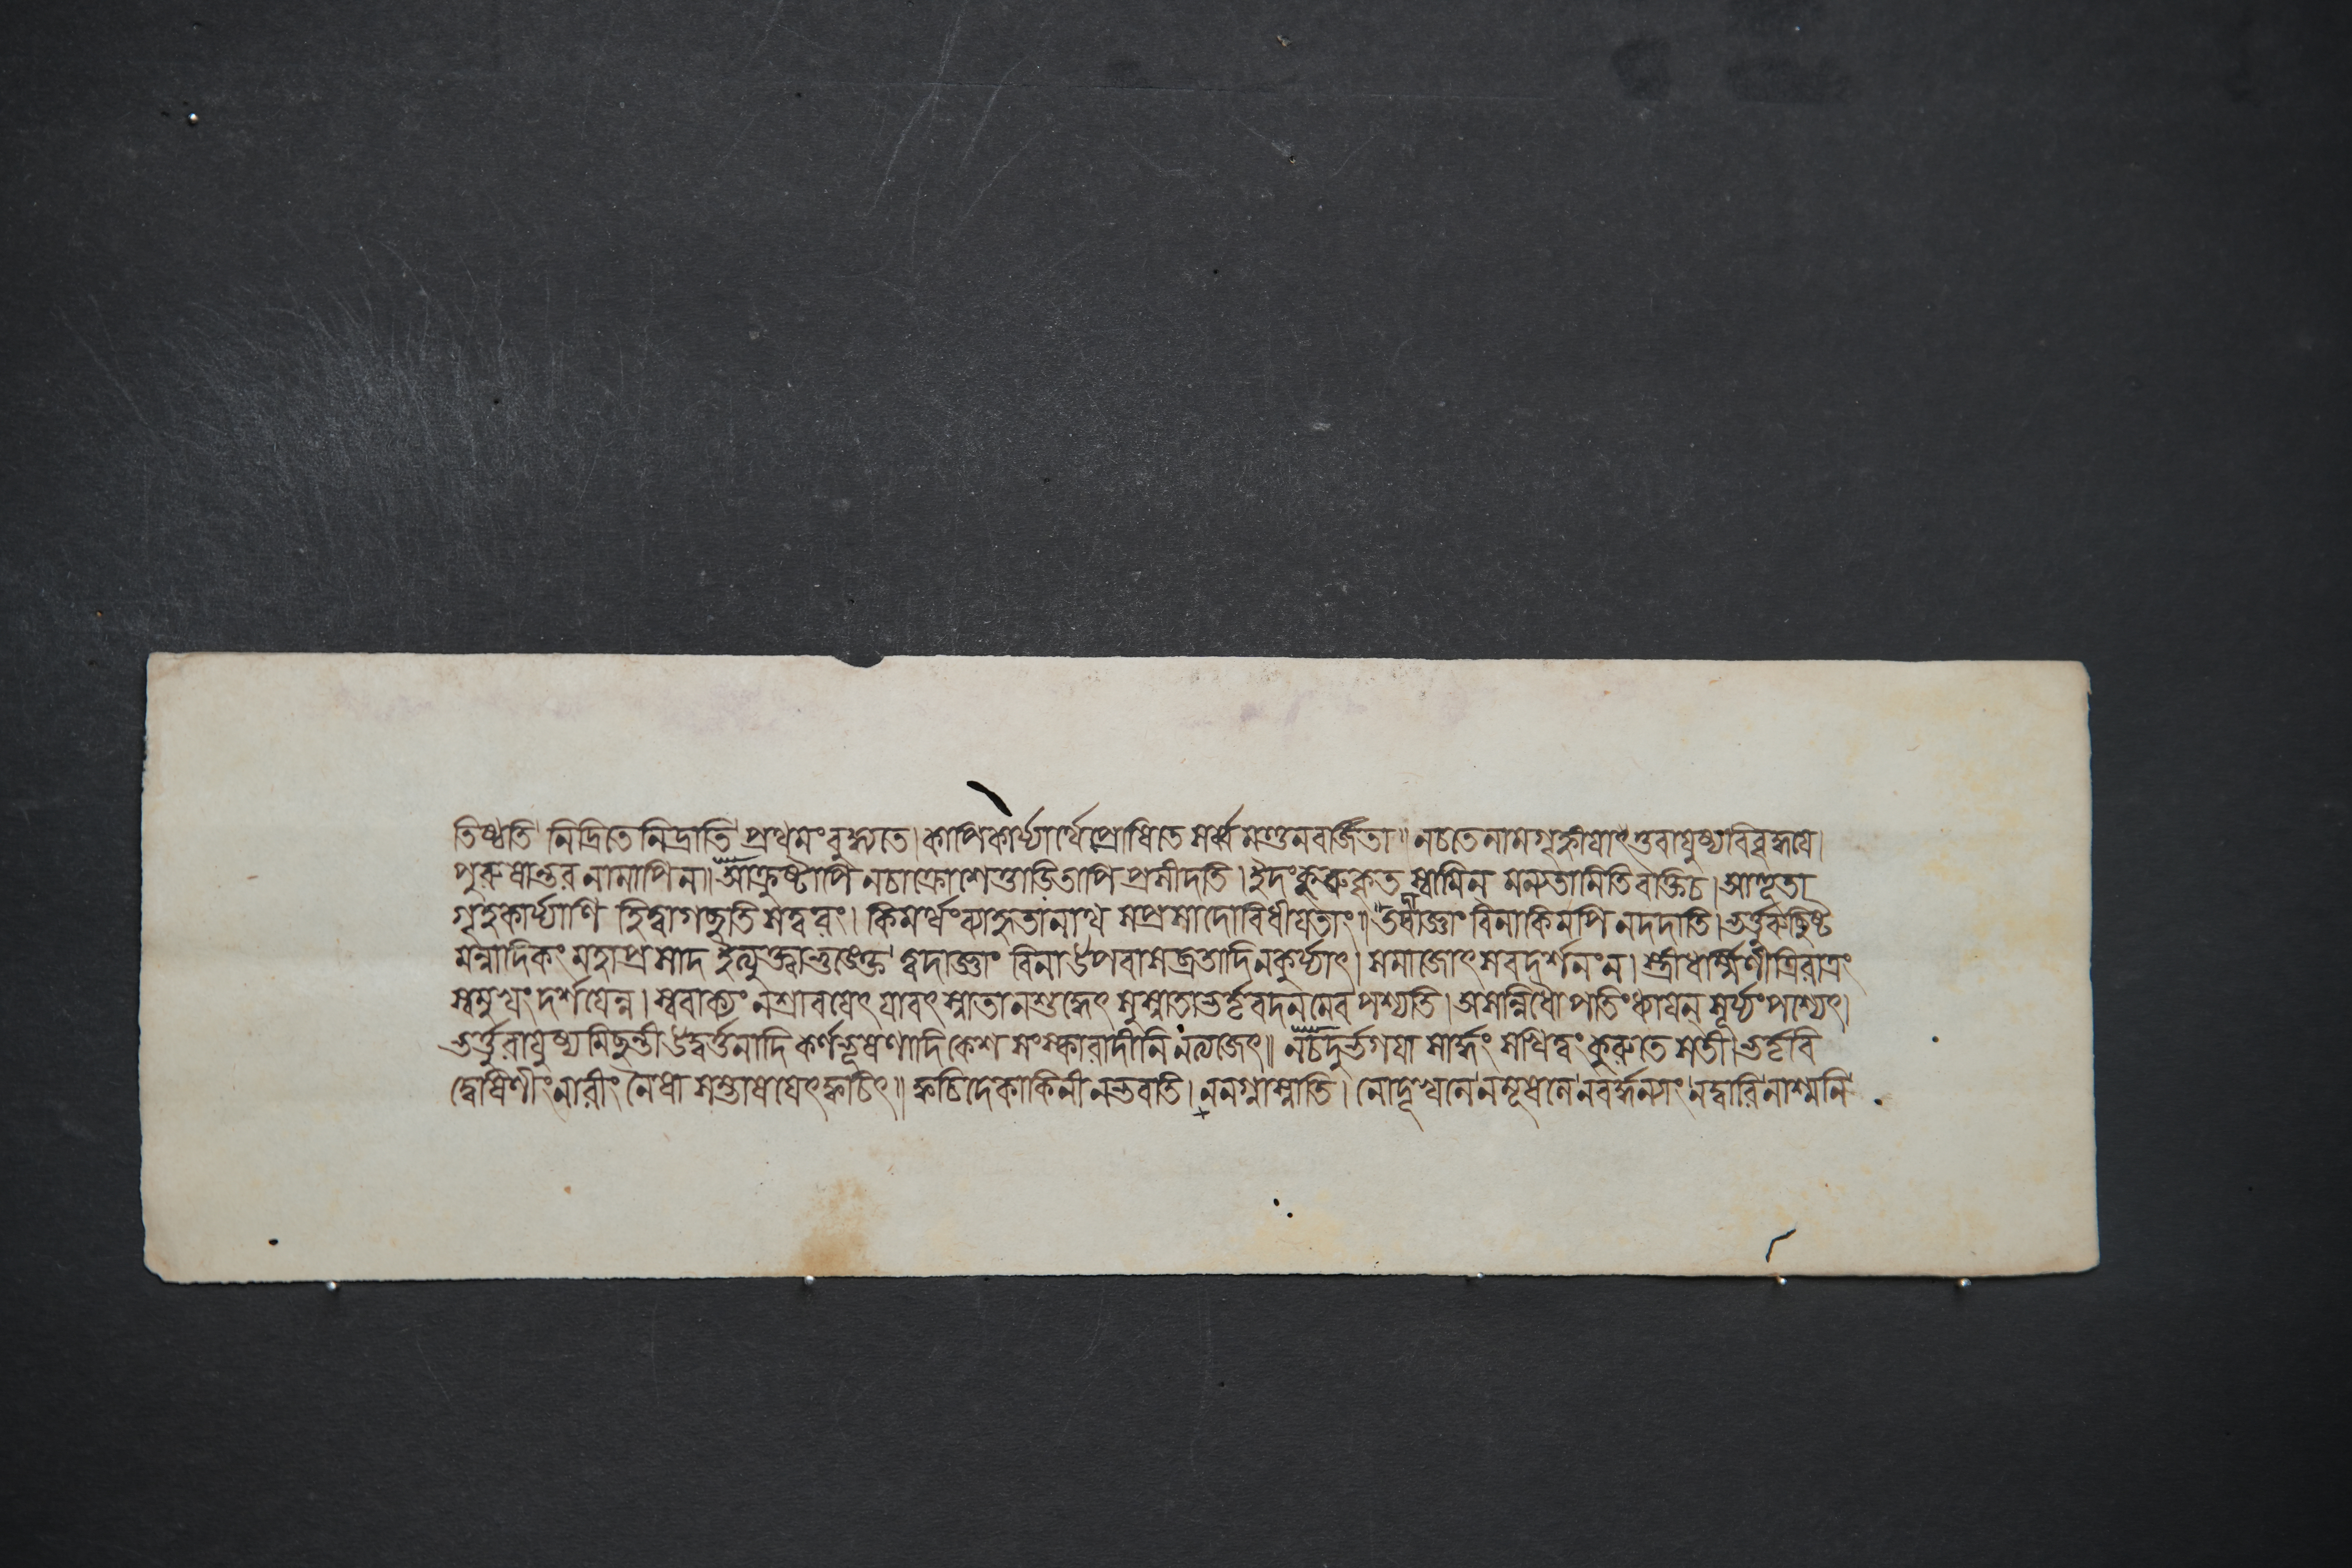 তিষ্ঠতি নিদ্রিতে নিদ্রাতি প্রথমং বুদ্ধ্যতে। কাপিকার্য্যার্থে প্রোষিতে সর্ব্ব মণ্ডনবর্জিতা॥ নচতেনামগৃহ্নীয়াৎ তুবায়ুষ্যবিবৃদ্ধয়ে।
পুরুষান্তর নামাপিন॥ আক্রুষ্টাপি নচাক্রোশেত্তাডিতাপি প্রসীদতি। ইদং কুরুকৃত স্বামিন্ মন্যতামিতিবক্তিচ। আহূতা
গৃহকার্য্যাণি হিত্বাগচ্ছতি সত্বরং। কিমর্থং ব্যাহৃতানাথ সপ্রসাদোবিধীয়তাং॥ তবাজ্ঞাং বিনাকিমপি নদদাতি। ভর্ত্তুরুচ্ছিষ্ট
মন্নাদিকং মহাপ্রসাদ ইত্যুক্ত্বাভুঙক্তে ত্বদাজ্ঞাং বিনাউপবাসব্রতাদিনকুর্য্যাৎ। সমাজোৎসবদর্শনংন। স্ত্রীধর্ম্মিণীত্রিরাত্রং
স্বমুখং দর্শয়েন্ন। স্ববাক্যং নশ্রাবয়েৎ যাবৎ স্নাতানশুদ্ধেৎ সুস্নাতাভর্তৃবদনমেব পশ্যতি। অসান্নিধৌ পতিংধ্যায়েন্ সূর্য্যংপশ্যেৎ।
ভর্ত্তুরায়ুষ্যমিচ্ছন্তীউদ্বর্ত্তনাদি কর্ণভূষণাদি কেশ সংস্কারাদীনি নত্যজেৎ॥ নচদুর্ভগয়া সার্দ্ধং সখিত্বং কুরুতে সতী। ভর্তৃবি
দ্বেষিণীং নারীং নৈষা সম্ভাষয়েৎক্বচিৎ॥ ক্বচিদেকাকিনী নভবতি। ননগ্নাস্নাতি। নোদূখলে নমূষলে নবর্দ্ধন্যাং নদ্বারি নাশ্মনি